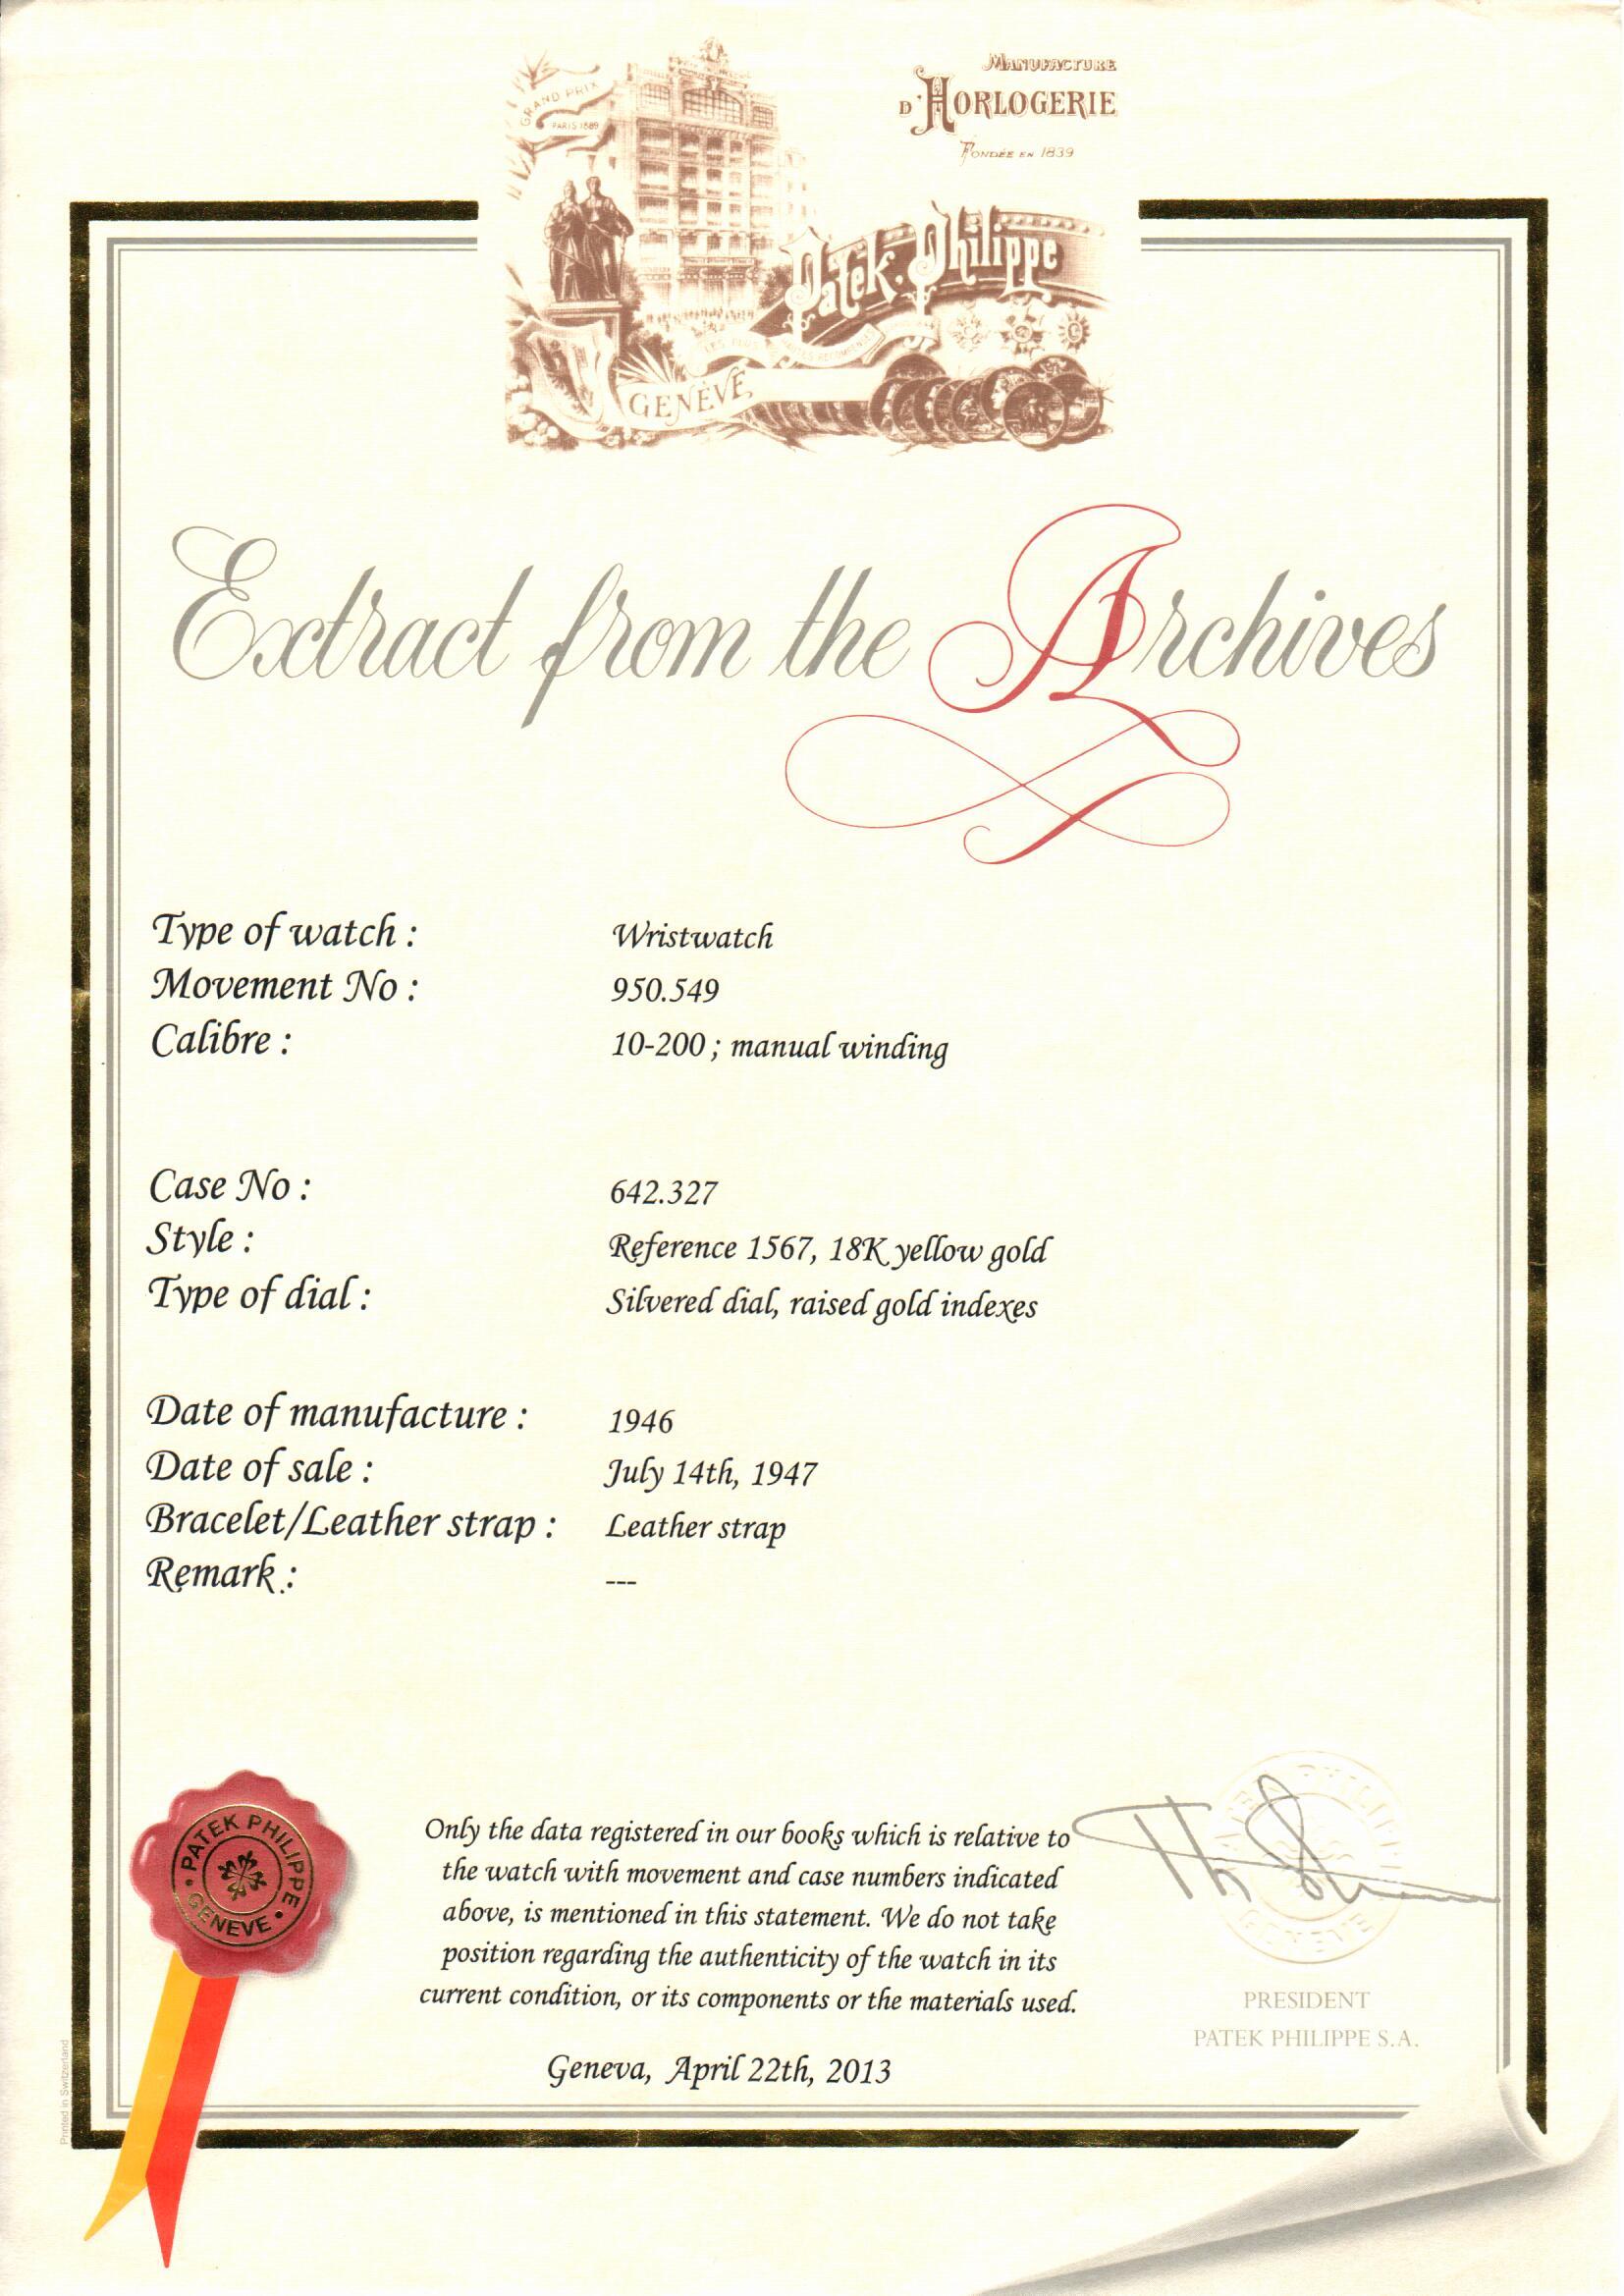 MANUFACTURE
D'HORLOGERIE
FONDÉE EN 1839
GRAND PRIX
PARIS 1889
Patek. Philippe
GENÈVE
Extract from the Archives
Type of watch : Wristwatch
Movement No : 950.549
Calibre : 10-200 ; manual winding
Case No : 642.327
Style : Reference 1567, 18K yellow gold
Type of dial : Silvered dial, raised gold indexes
Date of manufacture : 1946
Date of sale : July 14th, 1947
Bracelet/Leather strap : Leather strap
Remark : ---
PATEK PHILIPPE
GENEVE
Only the data registered in our books which is relative to
the watch with movement and case numbers indicated
above, is mentioned in this statement. We do not take
position regarding the authenticity of the watch in its
current condition, or its components or the materials used.
Geneva, April 22th, 2013
PRESIDENT
PATEK PHILIPPE S.A.
Printed in Switzerland